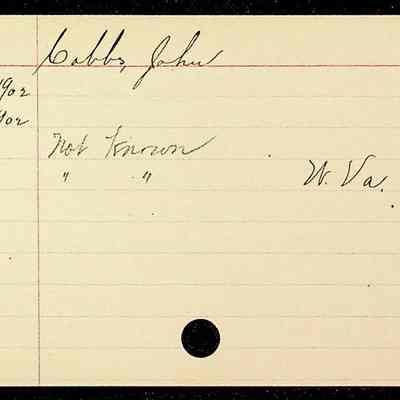 Cobbs, John
1902
1902
Not Known
" "
W. Va.